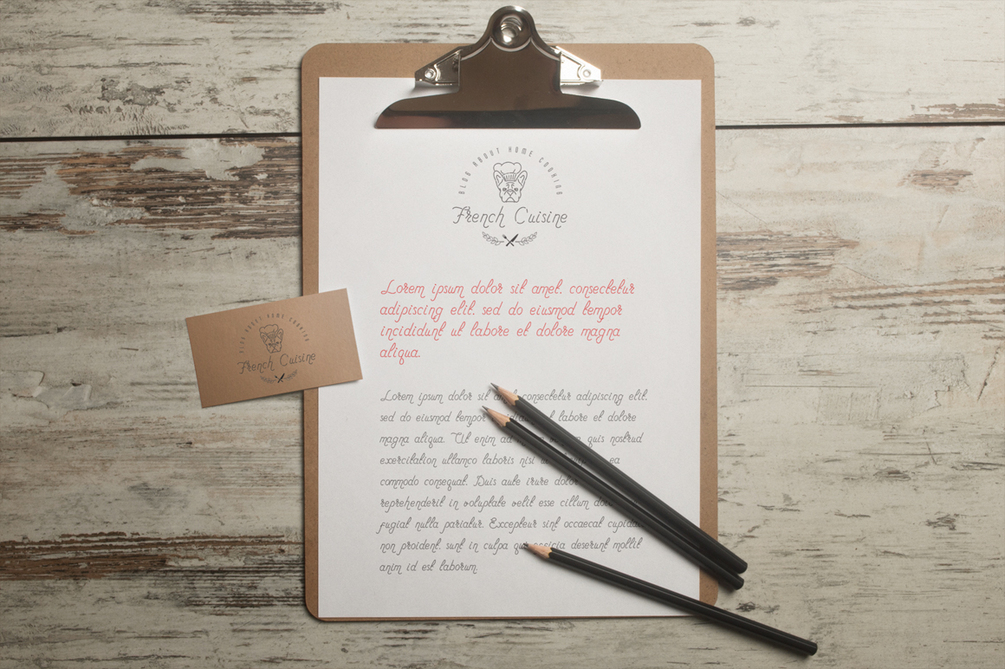 BLOG ABOUT HOME COOKING
French Cuisine
Lorem ipsum dolor sit amet, consectetur
adipiscing elit, sed do eiusmod tempor
incididunt ut labore et dolore magna
aliqua.
BLOG ABOUT HOME COOKING
French Cuisine
Lorem ipsum dolor sit consectetur adipiscing elit,
sed do eiusmod tempor ut labore et dolore
magna aliqua. Ut enim ad quis nostrud
exercitation ullamco laboris nisi ea
commodo consequat. Duis aute irure dolor
reprehenderit in voluptate velit esse cillum
fugiat nulla pariatur. Excepteur sint occaecat
non proident, sunt in culpa deserunt mollit
anim id est laborum.